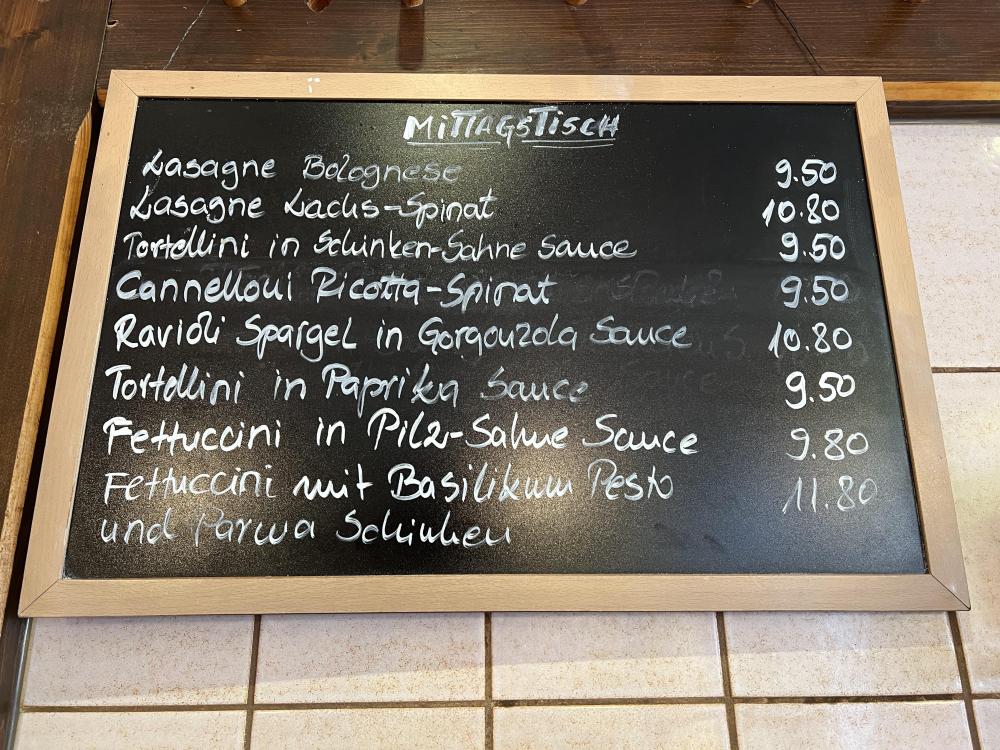 MITTAGSTISCH
Lasagne Bolognese 9.50
Lasagne Lachs-Spinat 10.80
Tortellini in Schinken-Sahne Sauce 9.50
Cannelloni Ricotta-Spinat 9.50
Ravioli Spargel in Gorgonzola Sauce 10.80
Tortellini in Paprika Sauce 9.50
Fettuccini in Pilz-Sahne Sauce 9.80
Fettuccini mit Basilikum Pesto 11.80
und Parma Schinken